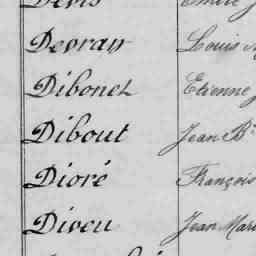 Devis Emile
Devray Louis
Dibonet Etienne
Dibout Jean Bte
Dioré François
Diveu Jean Marie